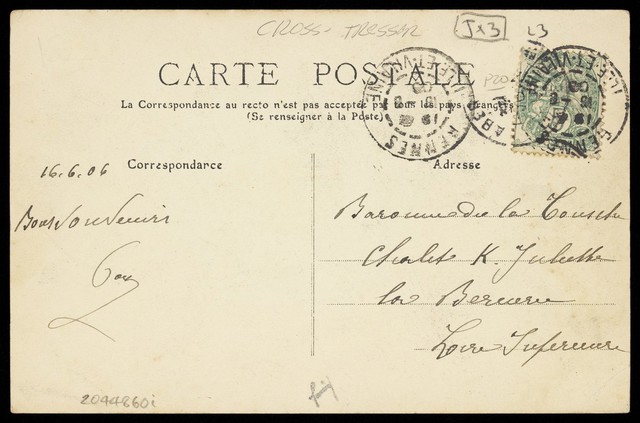 CROSS-TRESSER J x 3 L3
CARTE POSTALE
La Correspondance au recto n'est pas acceptée par tous les pays étrangers
(Se renseigner à la Poste)
RENNES
ILLE-ET-VILAINE
RENNES
ILLE-ET-VILAINE
Correspondance
Adresse
16.6.06
Bons Souvenirs
Baronne de la Tousche
Chalet K. Juliette
la Bernerie
Loire Inferieure
2044860i